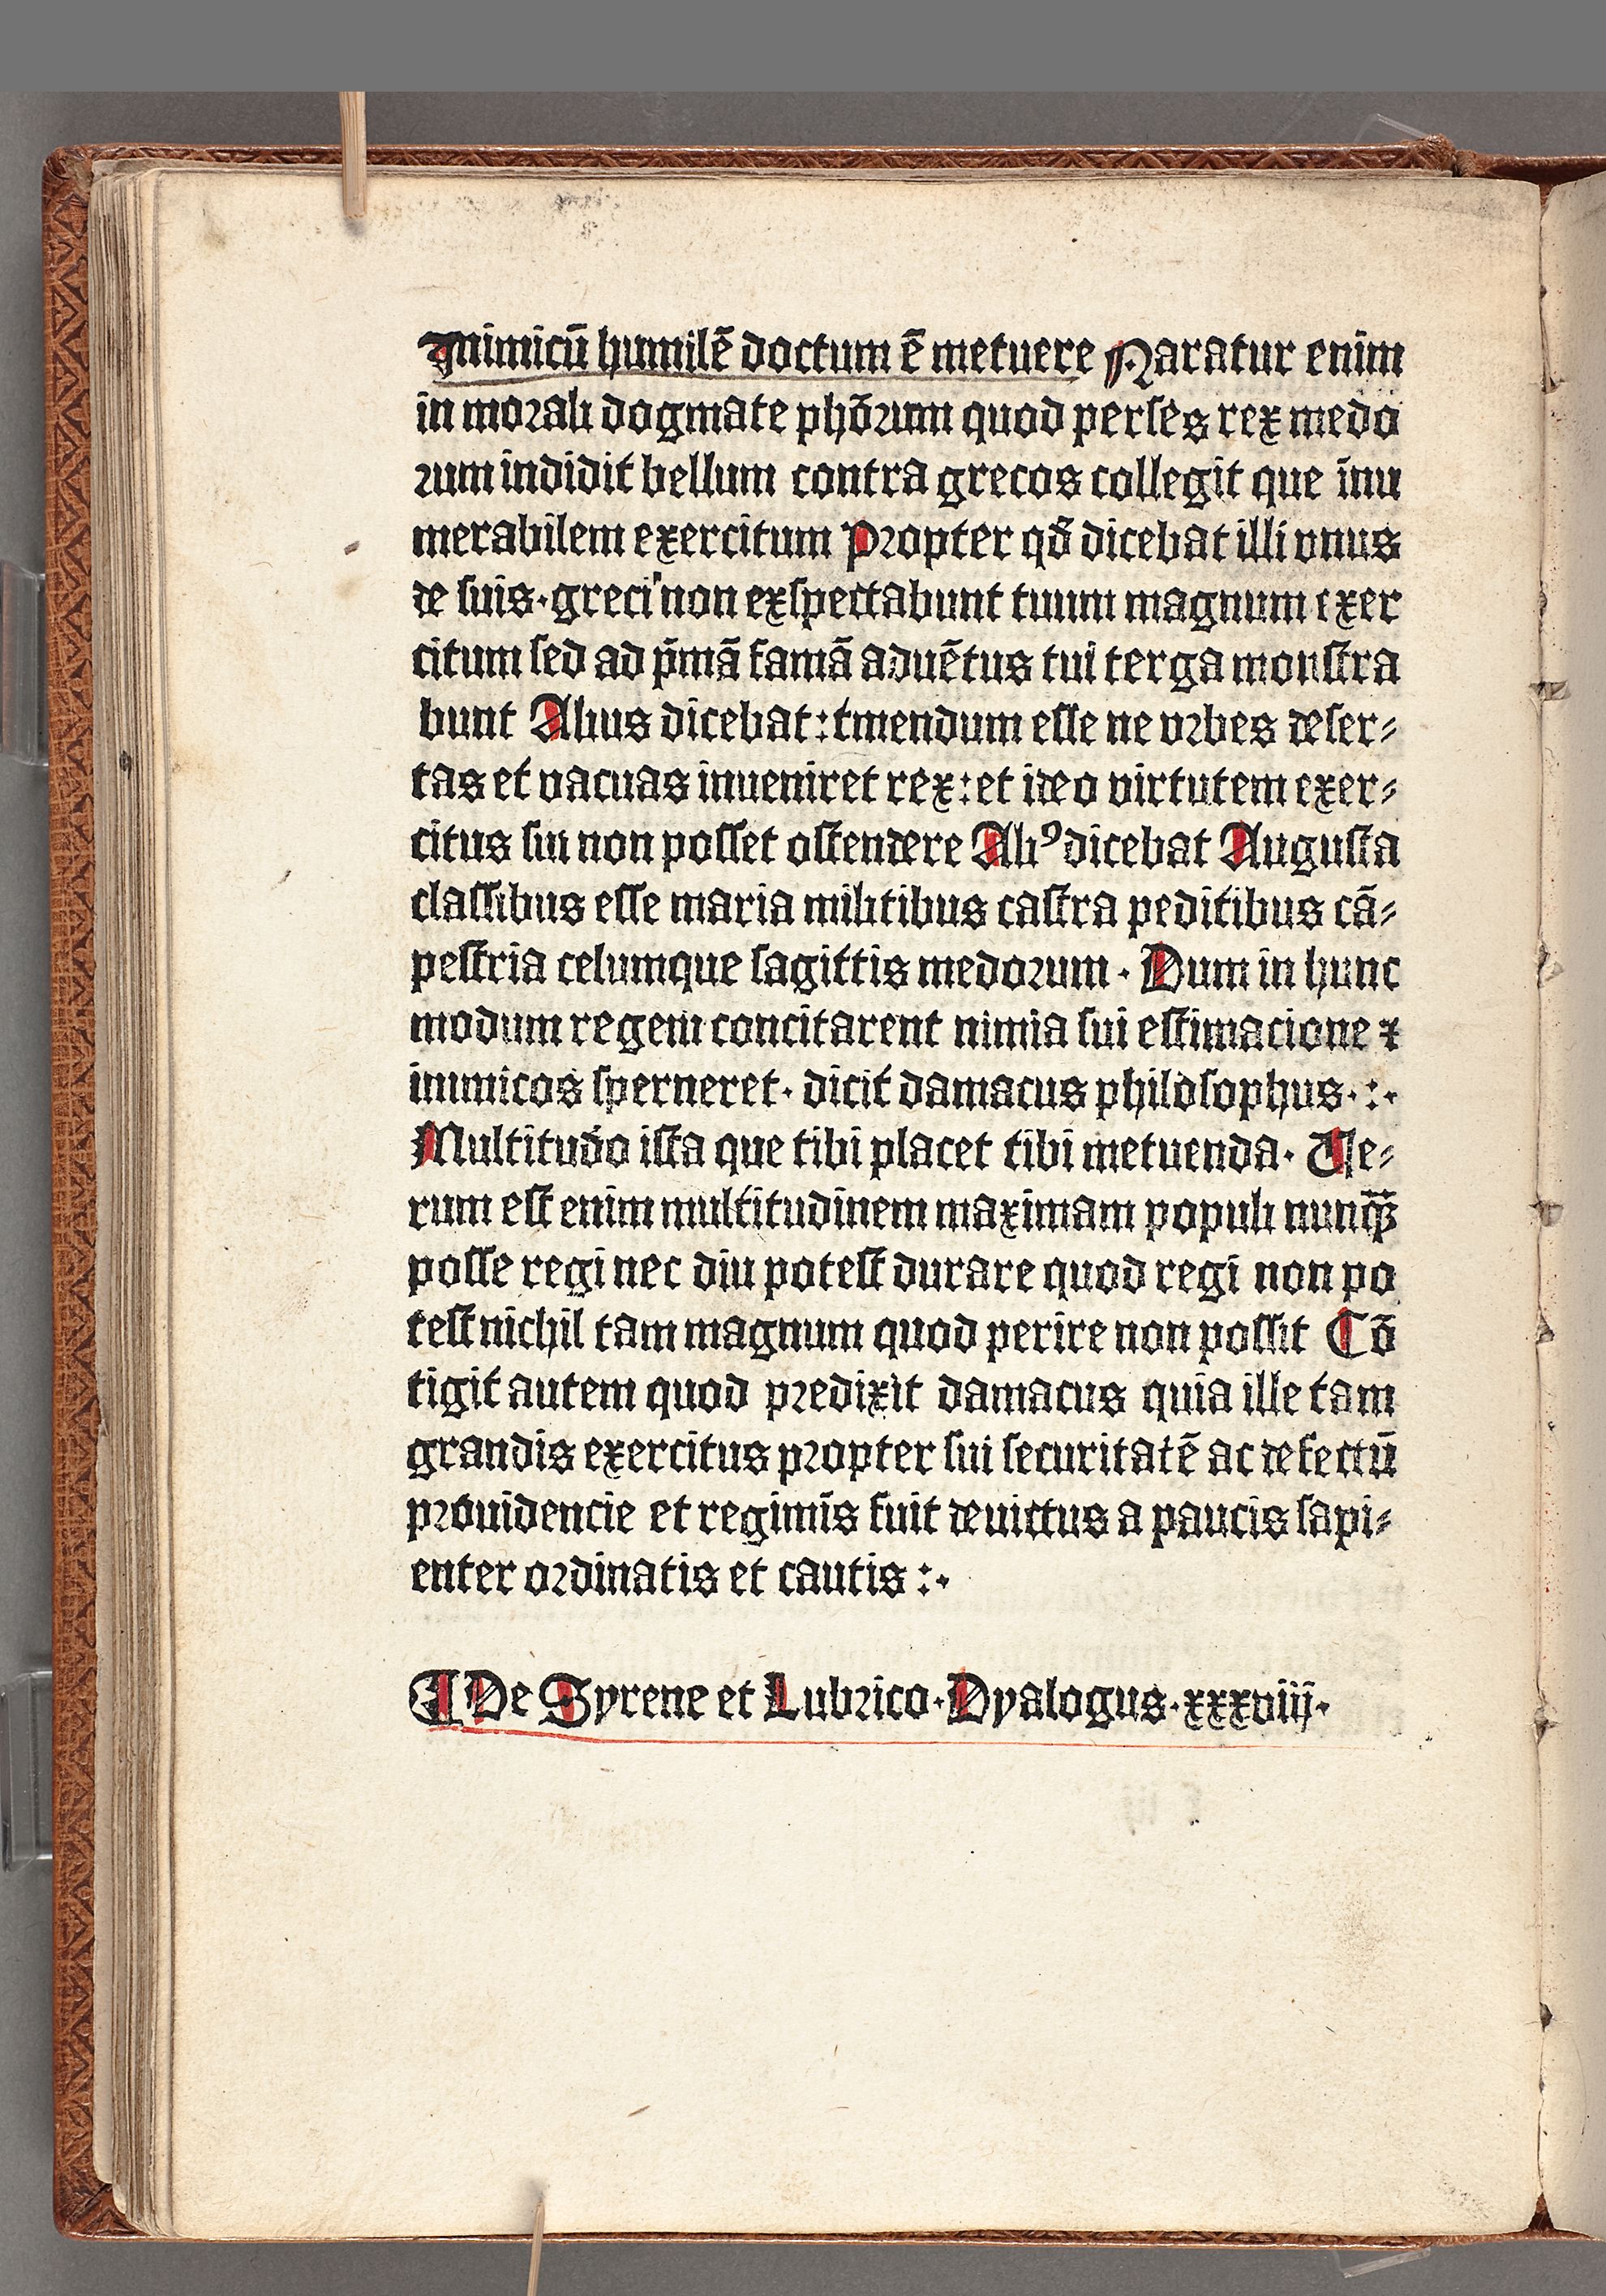 Inimicū humilē doctum ē metuere Naratur enim
in morali dogmate phōrum quod perses rex medo
rum indidit bellum contra grecos collegit que īnu
merabilem exercitum Propter qđ dicebat illi vnus
de suis·greci non exspectabunt tuum magnum exer
citum sed ad p̄mā famā aduētus tui terga monstra
bunt Alius dicebat:tmendum esse ne vrbes deser⸗
tas et vacuas inueniret rex:et ideo virtutem exer⸗
citus sui non posset ostendere Aliꝰ dicebat Augusta
classibus esse maria militibus castra peditibus cā⸗
pestria celumque sagittis medorum · Dum in hunc
modum regem concitarent nimia sui estimacione ⁊
inimicos sperneret· dicit damacus philosophus·:·
Multitudo ista que tibi placet tibi metuenda· Ve⸗
rum est enim multitudinem maximam populi nunq̄ꝫ
posse regi nec diu potest durare quod regi non po
test nichil tam magnum quod perire non possit Cō
tigit autem quod predixit damacus quia ille tam
grandis exercitus propter sui securitatē ac defectū
prouidencie et regimīs fuit deuictus a paucis sapi⸗
enter ordinatis et cautis :·
¶ De Syrene et Lubrico·Dyalogus·xxxviij·